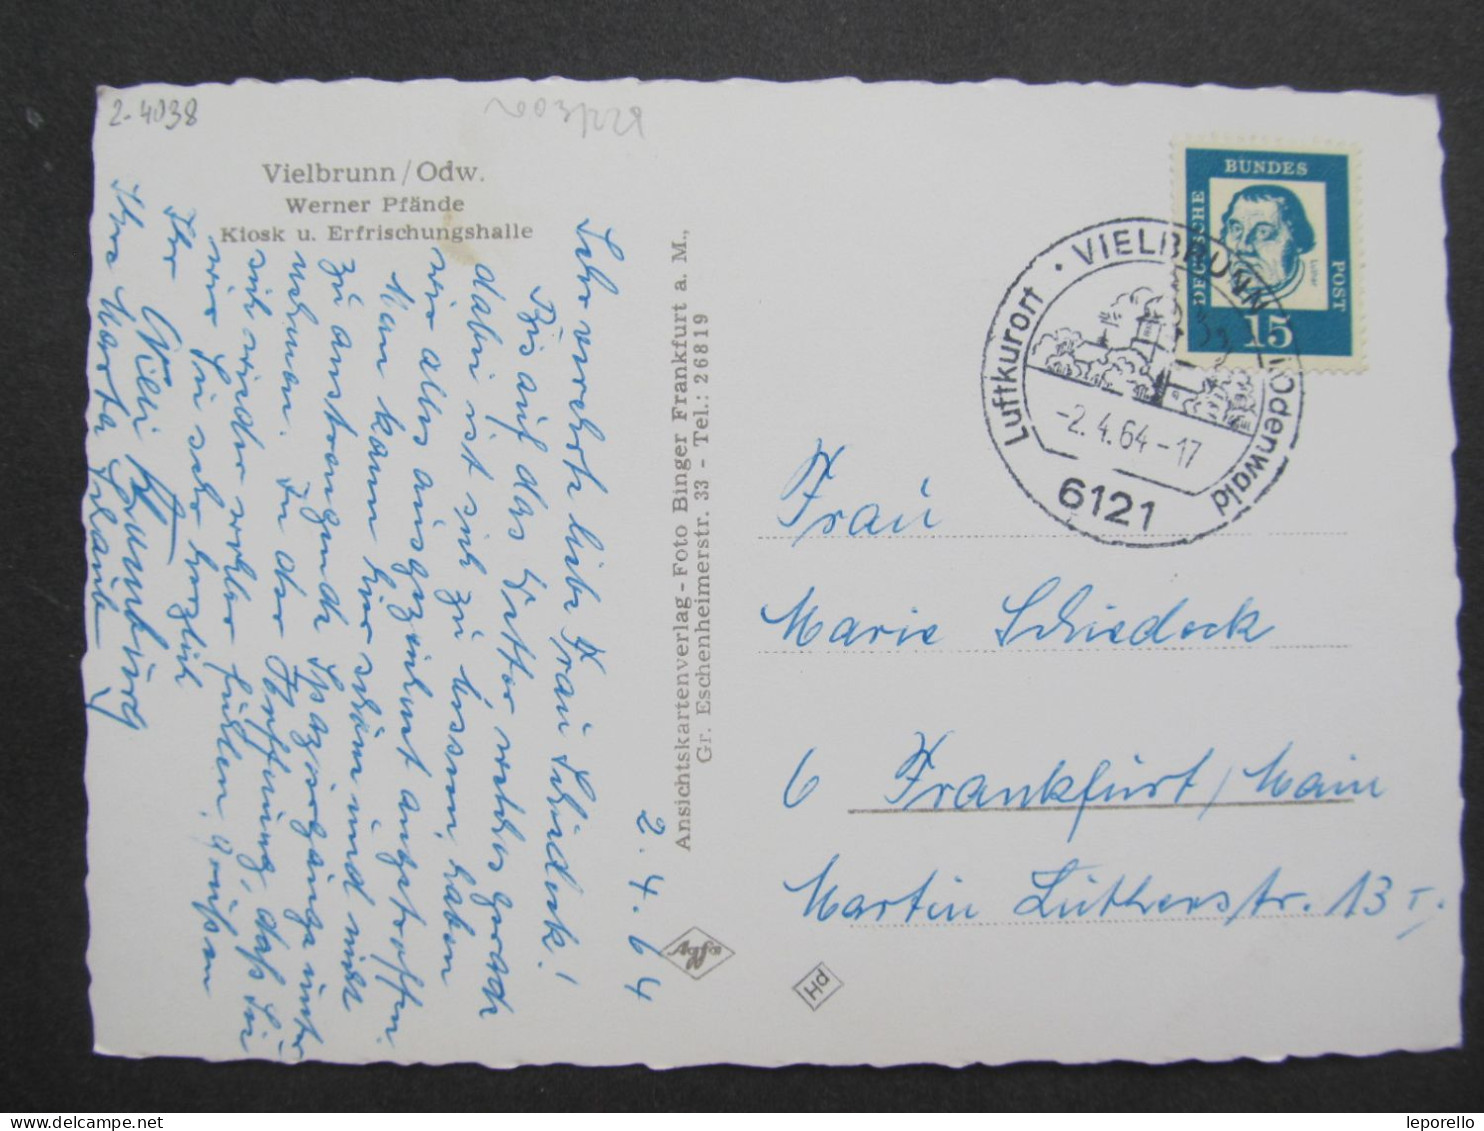 2-4038
2003/229
Vielbrunn/Odw.
Werner Pfände
Kiosk u. Erfrischungshalle
2.4.64
Sehr verehrte liebe Frau Schiedeck!
Bis auf das Wetter welches gerade
dabei ist sich zu bessern, haben
wir alles ausgezeichnet angetroffen.
Man kann hier schön und nicht
zu anstrengende Spaziergänge unter
nehmen. In der Hoffnung, daß Sie
sich wieder wohler fühlen, grüßen
wir Sie sehr herzlich
Ihr Willi
Ihre Marta
Ansichtskartenverlag - Foto Binger Frankfurt a. M.,
Gr. Eschenheimerstr. 33 - Tel.: 26819
Agfa
pH
DEUTSCHE BUNDES POST
Luther
15
Luftkurort · VIELBRUNN i. Odenwald
-2.4.64-17
6121
Frau
Marie Schiedeck
6 Frankfurt/Main
Martin Lutherstr. 13 I.
leporello
delcampe.net